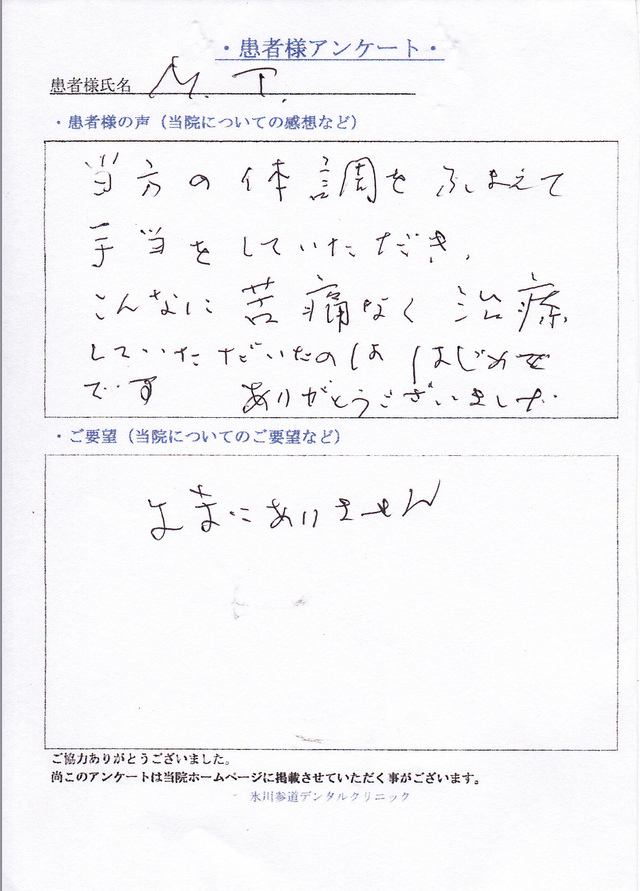 ・患者様アンケート・
患者様氏名 M. T.
・患者様の声（当院についての感想など）
当方の体調をふまえて
手当をしていただき、
こんなに苦痛なく治療
していただいたのははじめて
です ありがとうございました
・ご要望（当院についてのご要望など）
にありません
ご協力ありがとうございました。
尚このアンケートは当院ホームページに掲載させていただく事がございます。
氷川参道デンタルクリニック